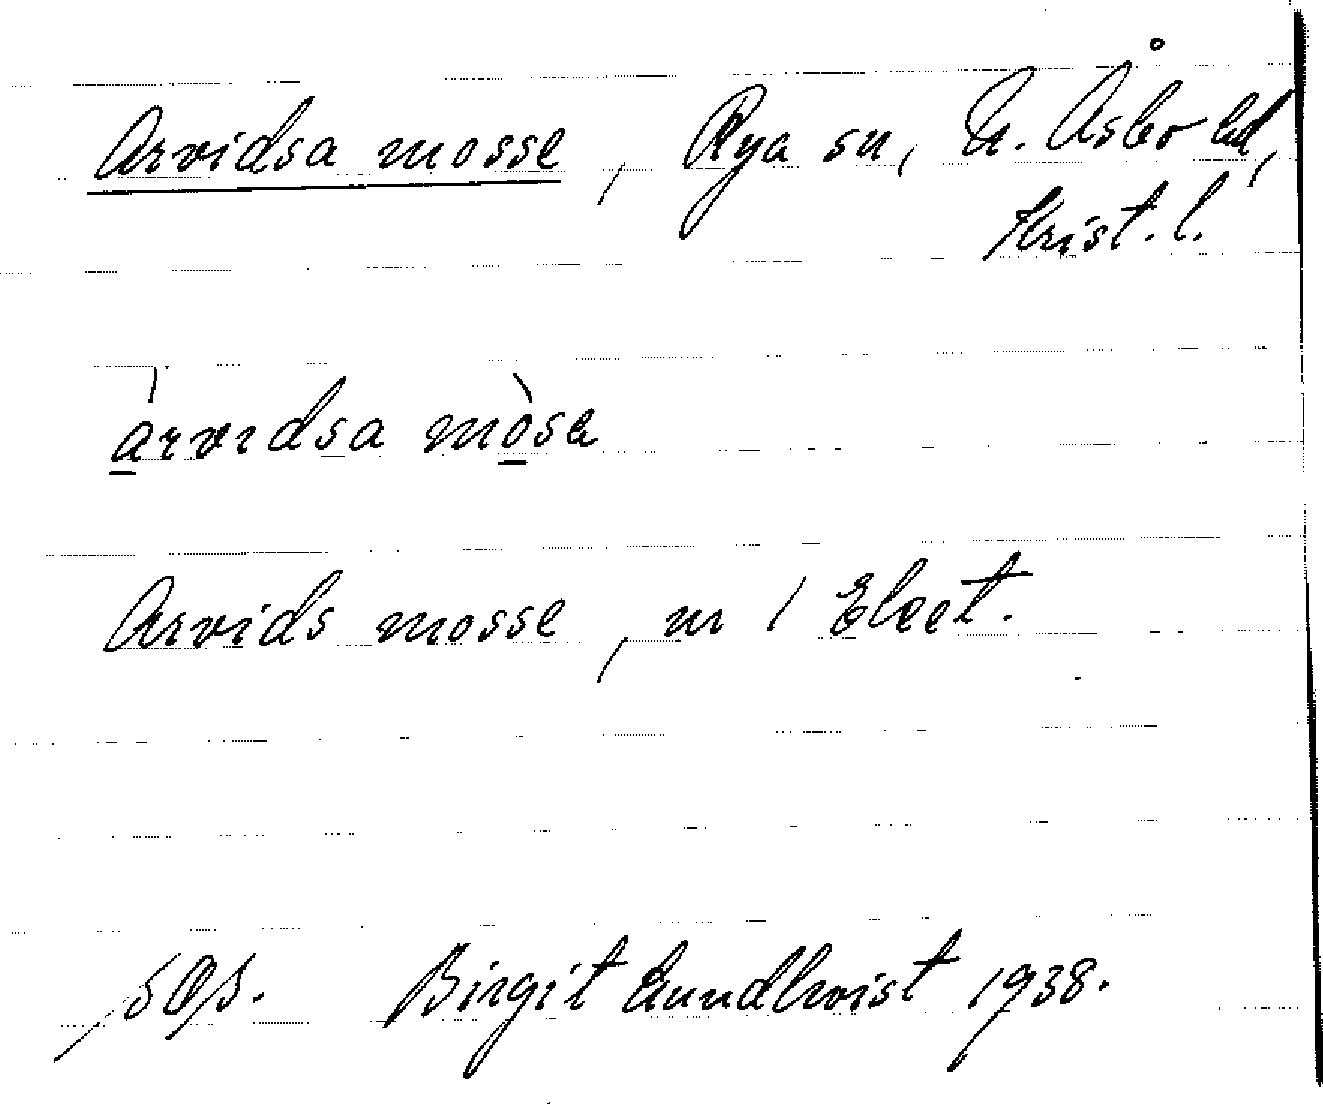 Arvidsa mosse, Rya sn, N. Åsbo hd,
Krist. l.
àrvıdsa mòsa
Arvids mosse, nr 1 Elcet.
SOS. Birgit Lundkvist 1938.